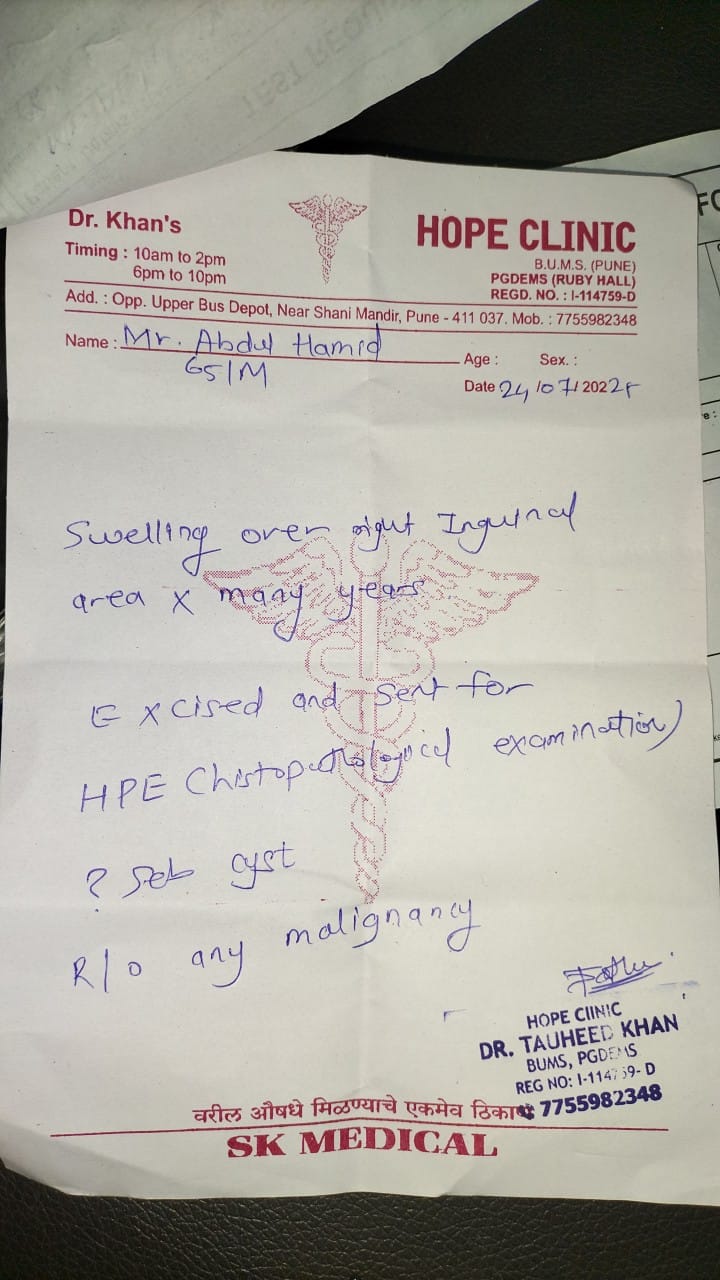 TEST REQU
Dr. Khan's
Timing : 10am to 2pm
6pm to 10pm
HOPE CLINIC
B.U.M.S. (PUNE)
PGDEMS (RUBY HALL)
REGD. NO. : I-114759-D
Add. : Opp. Upper Bus Depot, Near Shani Mandir, Pune - 411 037. Mob. : 7755982348
Name : Mr. Abdul Hamid
65/M
Age : Sex. :
Date 24/07/2025
Swelling over right Inguinal
area X many years
Excised and sent for
HPE (histopathological examination)
? Seb cyst
R/o any malignancy
HOPE ClINIC
DR. TAUHEED KHAN
BUMS, PGDEMS
REG NO: I-114759- D
7755982348
वरील औषधे मिळण्याचे एकमेव ठिकाण
SK MEDICAL